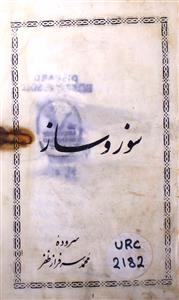 سوز و ساز
سرودۂ
محمد سرفراز ظفر
URC
2182